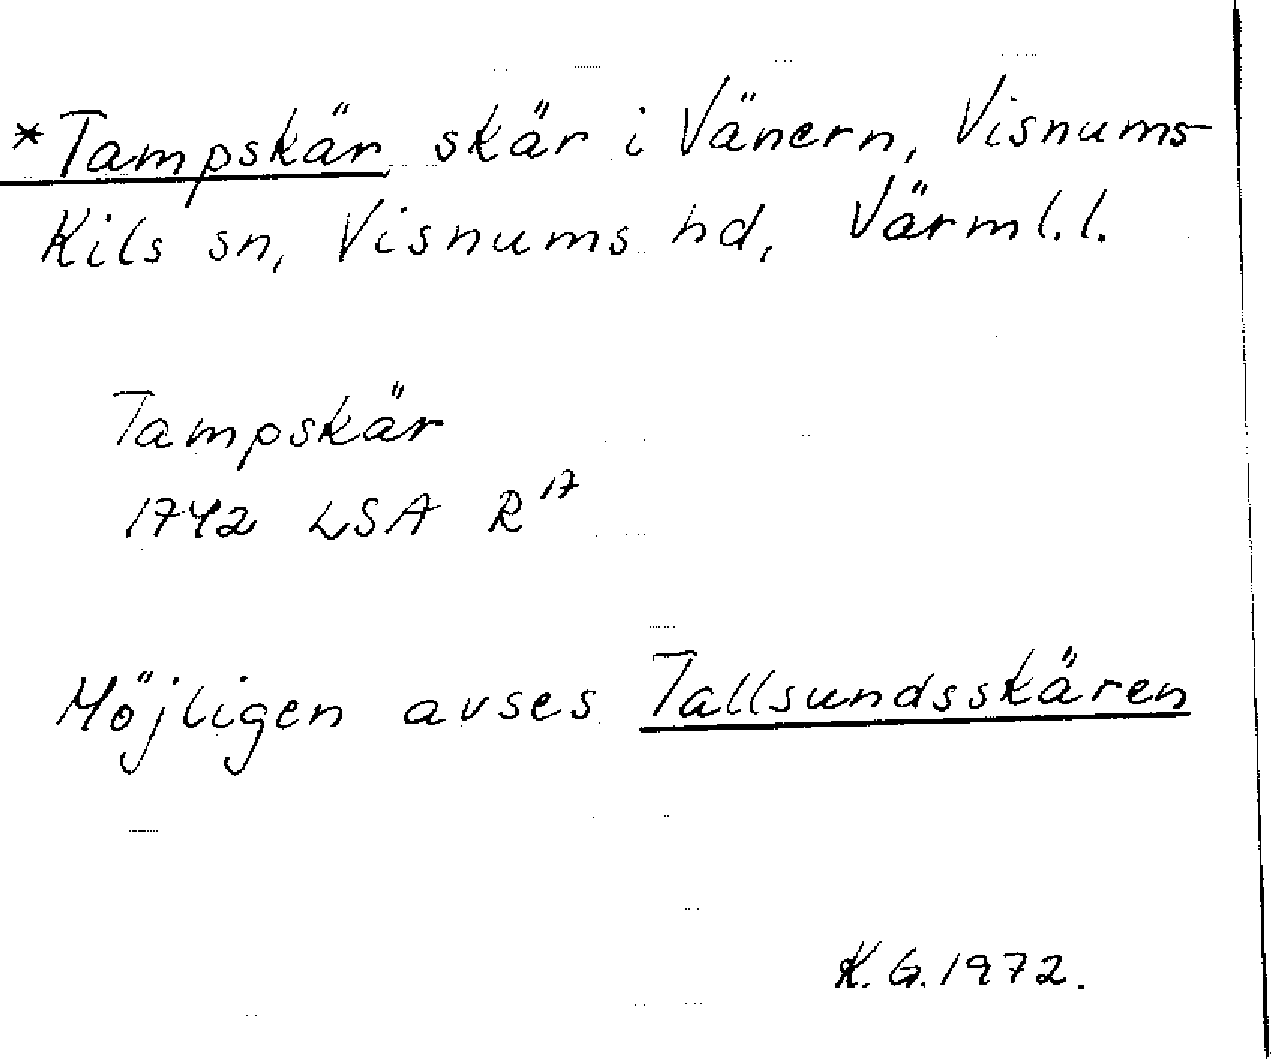 *Tampskär skär i Vänern, Visnums-
Kils sn, Visnums hd, Värml.l.
Tampskär
1742 LSA R17
Möjligen avses Tallsundsskären
K.G.1972.